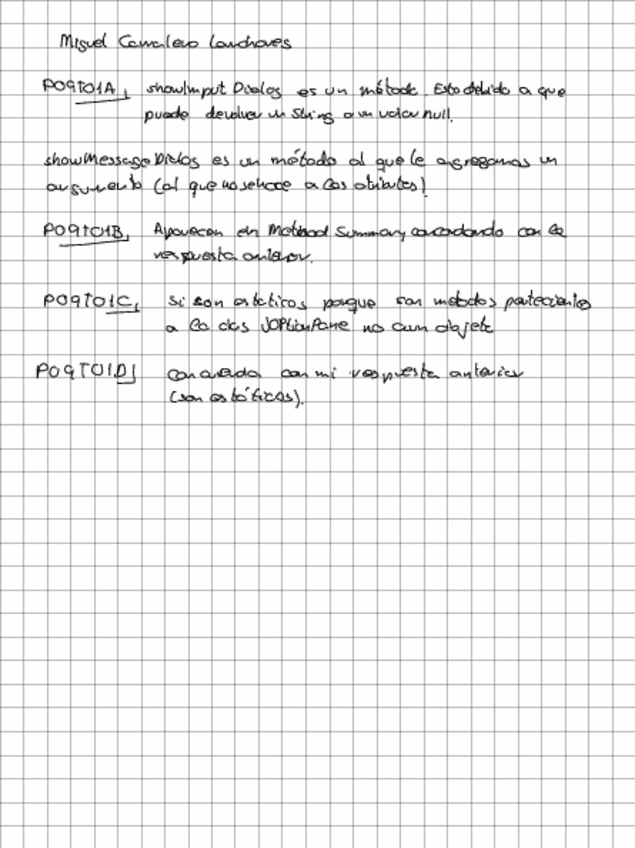 Miguel
P09T01A) showInputDialog es un método. Esto debido a que
puede devolver un String o un valor null.
showMessageDialog es un método al que le agregamos un
argumento (al que no se hace a los atributos)
P09T01B) Aparecen en Method Summary concordando con la
respuesta anterior.
P09T01C) Si son estáticos porque son métodos pertecientes
a la clas JOptionPane no a un objeto
P09T01D) concuerda con mi respuesta anterior
(son estáticos).